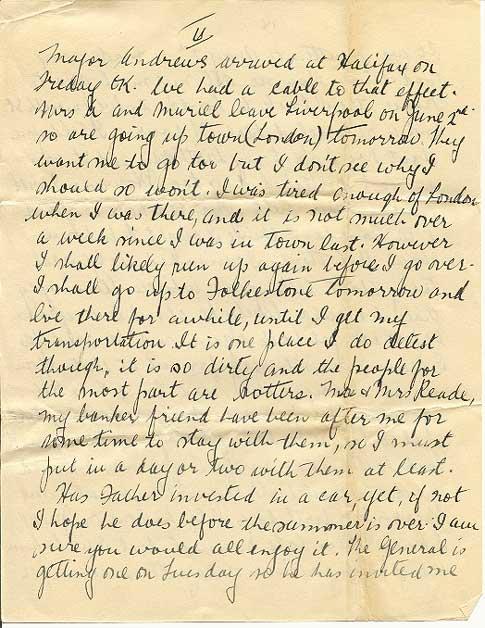 II
Major Andrews arrived at Halifax on
Friday OK. Ive had a cable to that effect.
Mrs A and Muriel leave Liverpool on June 2nd
so are going up town (London) tomorrow. They
want me to go too but I don't see why I
should so won't. I was tired enough of London
when I was there, and it is not much over
a week since I was in Town last. However
I shall likely run up again before I go over.
I shall go up to Folkestone tomorrow and
live there for awhile, until I get my
transportation. It is one place I do detest
though, it is so dirty and the people for
the most part are rotters. Mr & Mrs Reade,
my banker friend have been after me for
some time to stay with them, so I must
put in a day or two with them at least.
Has Father invested in a car, yet, if not
I hope he does before the summer is over. I am
sure you would all enjoy it. The General is
getting one on Tuesday so he has invited me